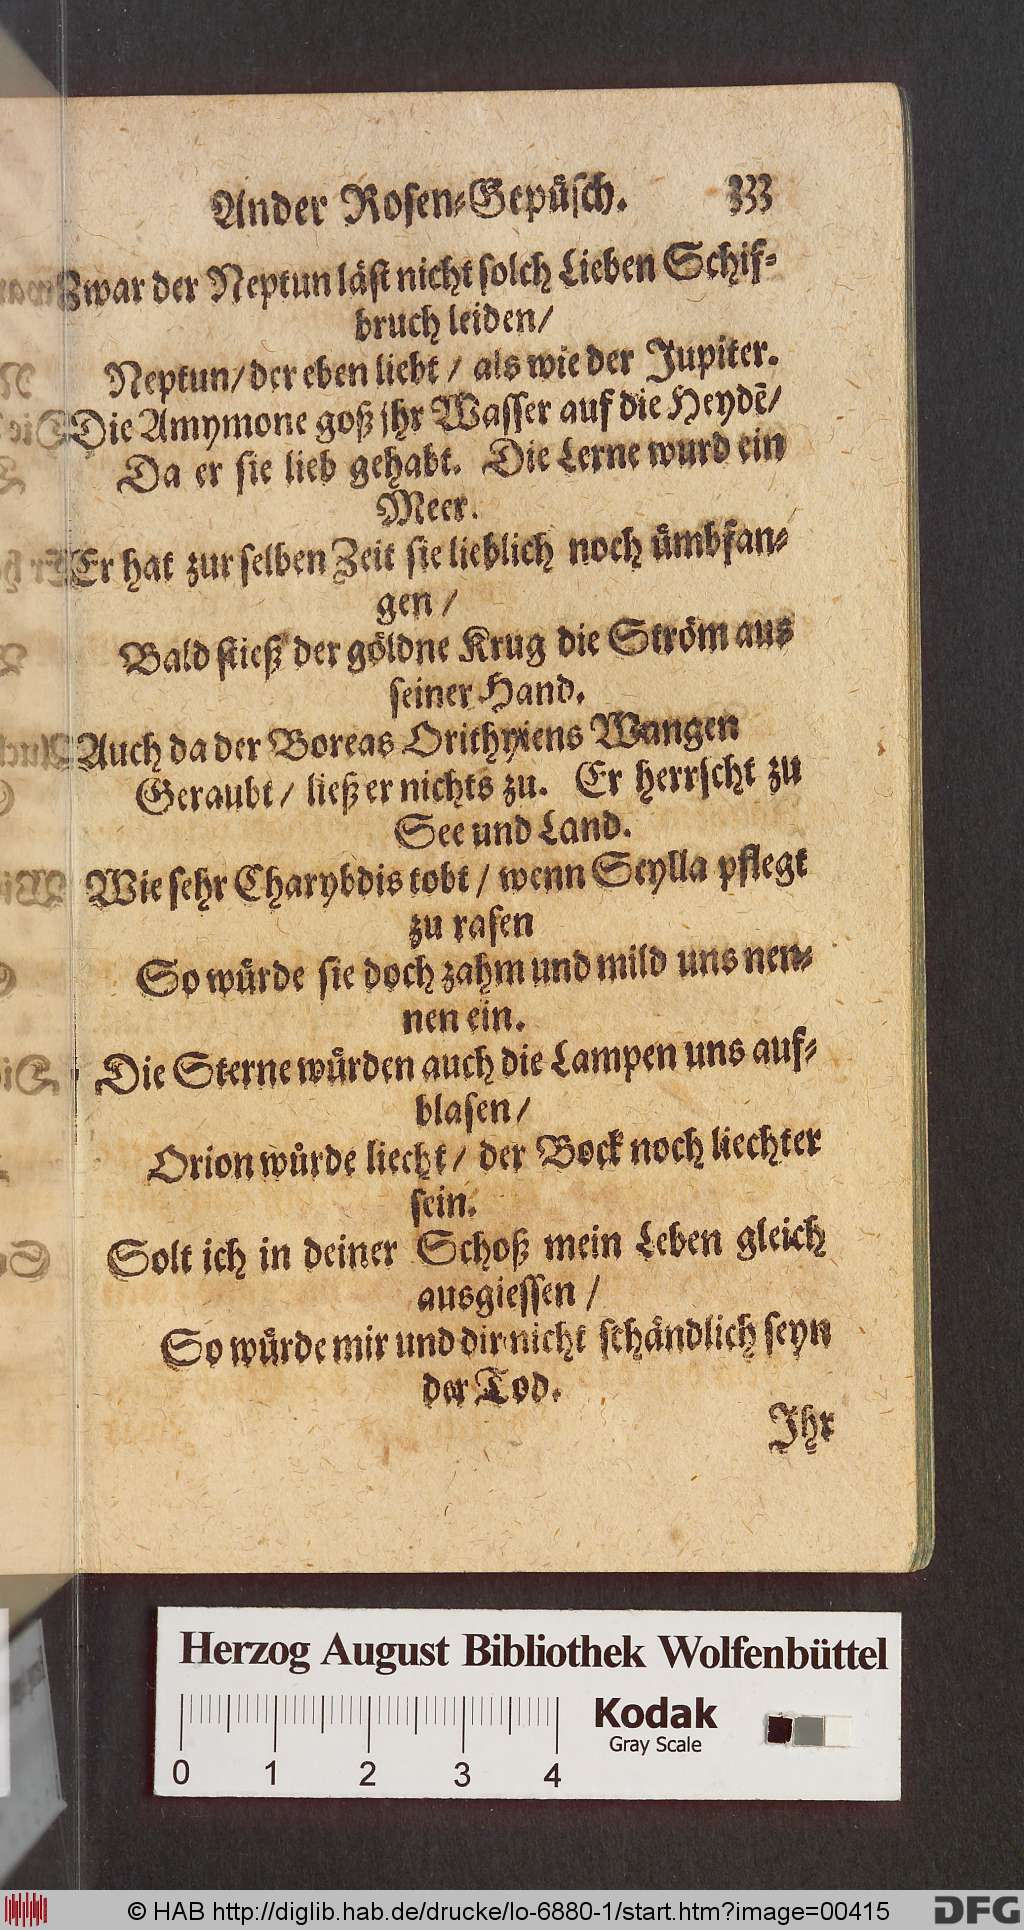 Ander Rosen-Gepüsch. 333
Zwar der Neptun läst nicht solch Lieben Schif-
bruch leiden/
Neptun/ der eben liebt / als wie der Jupiter.
Die Amymone goß jhr Wasser auf die Heydē/
Da er sie lieb gehabt. Die Lerne wurd ein
Meer.
Er hat zur selben Zeit sie lieblich noch ümbfan-
gen /
Bald stieß der göldne Krug die Ström aus
seiner Hand.
Auch da der Boreas Orithyiens Wangen
Geraubt/ ließ er nichts zu. Er herrscht zu
See und Land.
Wie sehr Charybdis tobt / wenn Scylla pflegt
zu rasen
So würde sie doch zahm und mild uns nen-
nen ein.
Die Sterne würden auch die Lampen uns auf-
blasen/
Orion würde liecht/ der Bock noch liechter
sein.
Solt ich in deiner Schoß mein Leben gleich
ausgiessen /
So würde mir und dir nicht schändlich seyn
der Tod.
Ihr
Herzog August Bibliothek Wolfenbüttel
Kodak
Gray Scale
0 1 2 3 4
© HAB http://diglib.hab.de/drucke/lo-6880-1/start.htm?image=00415
DFG